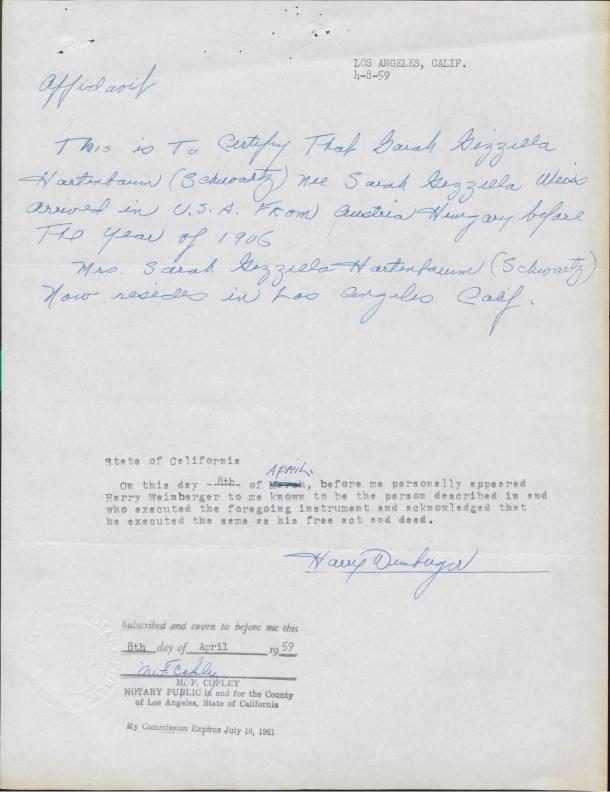 LOS ANGELES, CALIF.
4-8-59
Affidavit
This is To Certify That Sarah Gizzilla
Hartenbaum (Schwartz) nee Sarah Gezzilla Weiss
arrived in U.S.A. From Austria Hungary before
The year of 1906
Mrs. Sarah Gezzilla Hartenbaum (Schwartz)
Now resides in Los Angeles Calif.
State of California
April
On this day --8th of March, before me personally appeared
Harry Weinberger to me known to be the person described in and
who executed the foregoing instrument and acknowledged that
he executed the same as his free act and deed.
Harry Weinberger
Subscribed and sworn to before me this
8th day of April 1959
M. F. Copley
M. F. COPLEY
NOTARY PUBLIC in and for the County
of Los Angeles, State of California
My Commission Expires July 10, 1961